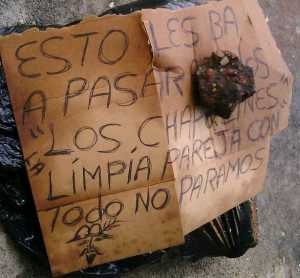 ESTO LES BA
A PASAR
"LOS CHAPULINES"
LIMPÍA PAREJA CON
Todo NO PARAMOS